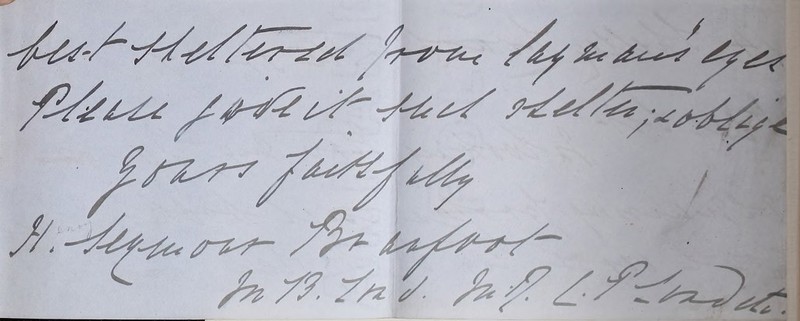 best sheltered from layman's eyes
Please give it such shelter; & oblige
Yours faithfully
H. Seymour
M B. Lond. M.R. C. P Lond etc.